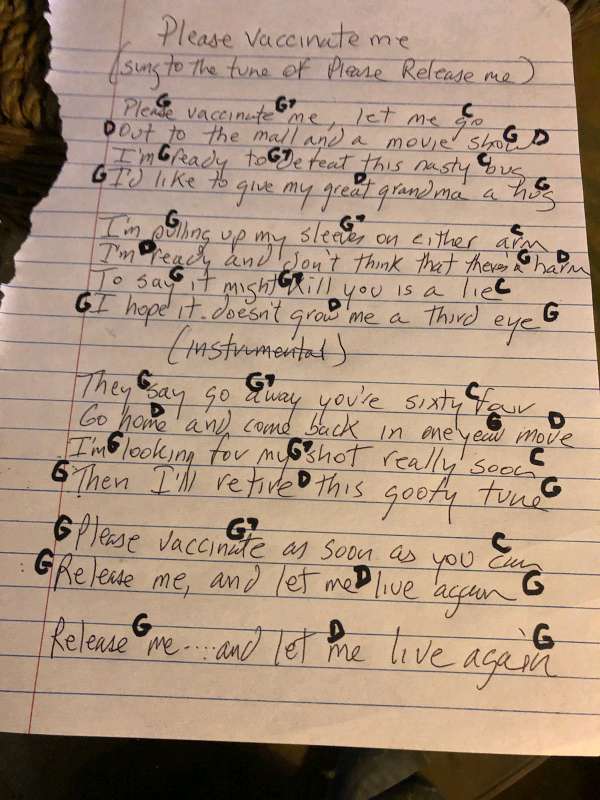 Please vaccinate me
(sung to the tune of Please Release me)
G G7 C
Please vaccinate me, let me go
D G D
Out to the mall and a movie show
G G7 C
I'm ready to defeat this nasty bug
G D G
I'd like to give my great grandma a hug
G G7 C
I'm pulling up my sleeves on either arm
D G D
I'm ready and don't think that there's a harm
G G7 C
To say it might kill you is a lie
G D G
I hope it doesn't grow me a third eye
(instrumental)
G G7 C
They say go away you're sixty four
D G D
Go home and come back in one year move
G G7 C
I'm looking for my shot really soon
G D G
Then I'll retire this goofy tune
G G7 C
Please vaccinate as soon as you can
G D G
Release me, and let me live again
G D G
Release me....and let me live again